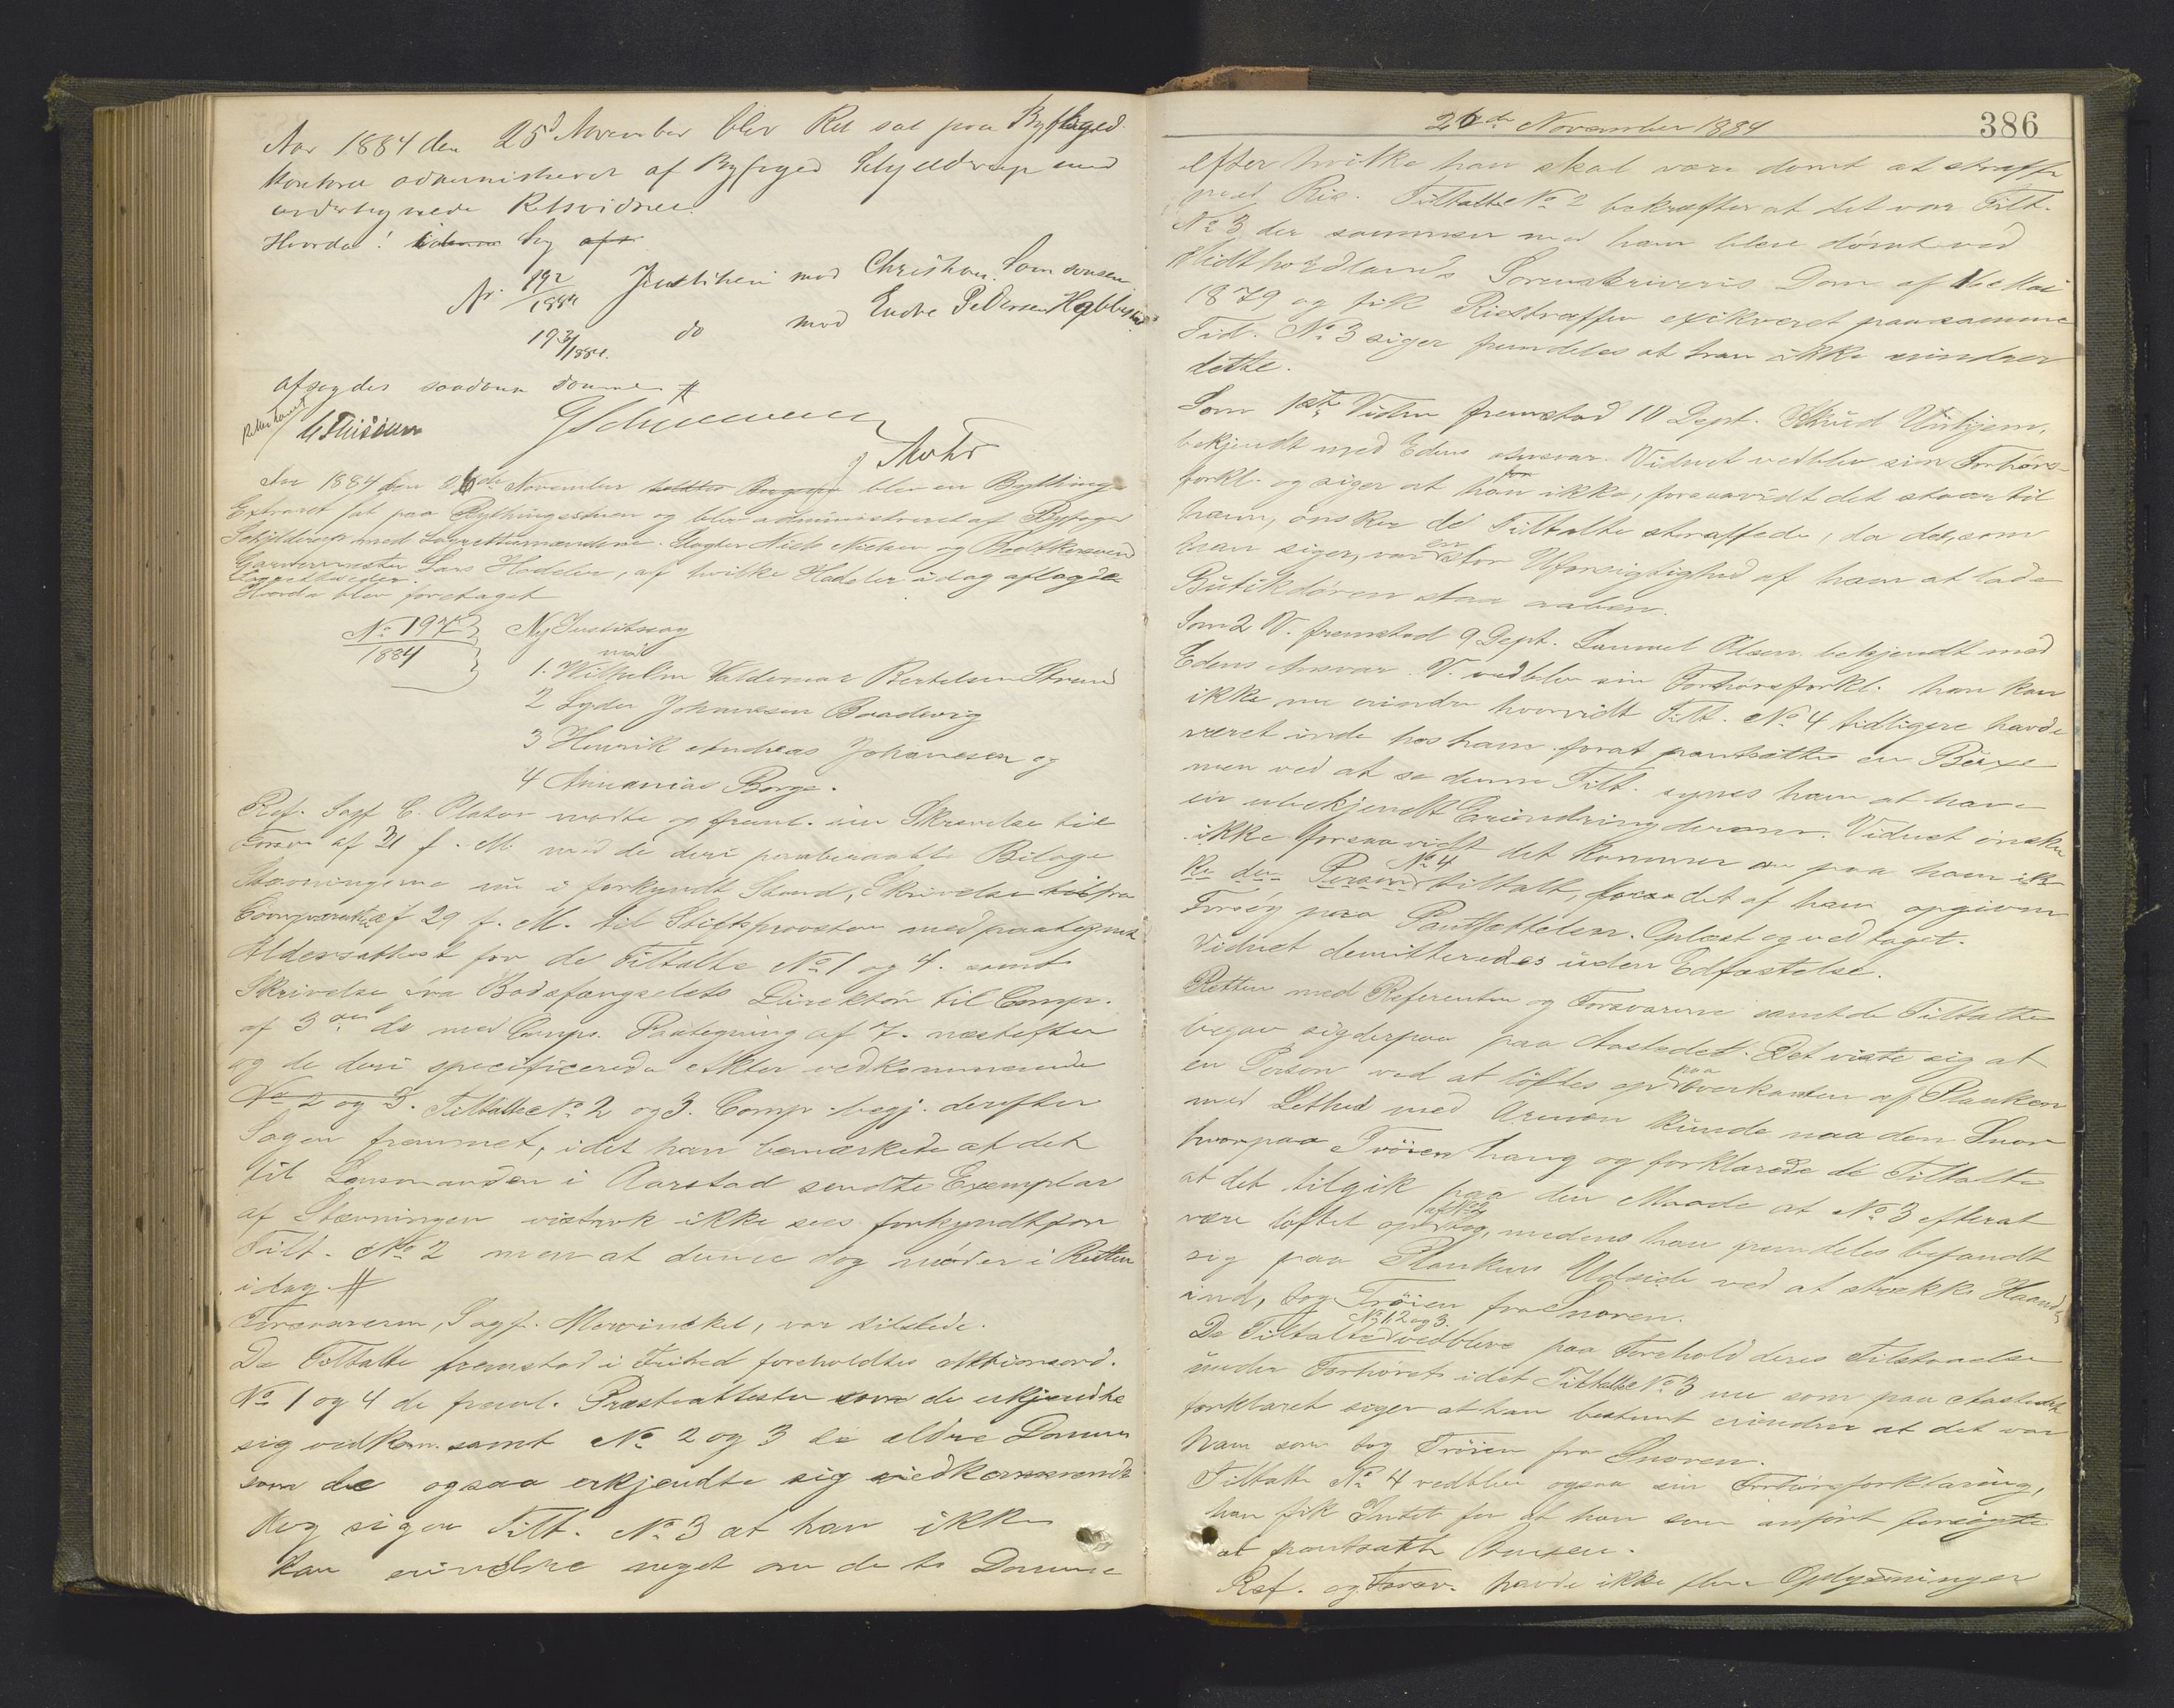 Aar 1884 den 25d November blev Ret sat paa Byfoged
kontoret administreret af Byfoged Schjelderup med
undertegnede Retsvidner.
Hvorda!
Nr. 192/1884 Justitien mod Christian Samsonsen
193/1884. do mod Endre Pedersen
afsagdes saadanne Domme #
Mohr
Aar 1884 den 26de November blev en Bything
Extraret sat paa Bythingsstuen og blev administreret af Byfoged
Schjelderup med Laugrettesmændene Slagter Niels Nielsen og
Garvermester Lars Hodeler, af hvilke Hodeler idag aflagde
Laugretteseden.
Hvorda blev foretaget
No 197/1884 Ny Justitssag
mod
1. Wilhelm Valdemar Bertelsen Strand
2 Lyder Johannesen Baadsvig
3 Henrik Andreas Johanesen og
4 Annanias Borge.
Ref. Sagf C. Platou mødte og freml. sin Skrivelse til
Forsv. af 31 f. M. med de deri paaberaabte Bilage
Stævningerne nu i forkyndt Stand, Skrivelse fra
Comparenten af 29 f. M. til Stiftsprovsten med paategnet
Aldersattest for de Tiltalte No 1 og 4. samt
Skrivelse fra Bodsfængselets Direktør til Comp.
af 3die ds med Comps. Paategning af 7. næstefter
og de deri specificerede Akter vedkommende
No 2 og 3. Tiltalte No 2 og 3. Comp. begj. derefter
Sagen fremmet, idet han bemærkede at det
til Lensmanden i Aarstad sendte Exemplar
af Stævningen vistnok ikke sees forkyndt for
Tilt. No 2 men at denne dog møder i Retten
idag #
Forsvareren, Sagf. Mowinckel, var tilstede.
De Tiltalte fremstod i Frihed foreholdtes Aktionsord.
No 1 og 4 de freml. Præsteattester som de erkjendte
sig vedkom. samt No 2 og 3 de ældre Domme
som de ogsaa erkjendte sig vedkommende
dog siger Tilt. No 3 at han ikke
kan erindre noget om de to Domme
26de November 1884
386
efter hvilke han skal være dømt at straffe
med Ris. Tiltalte No 2 bekræfter at det var Tilt.
No 3 der sammen med ham blev dømt ved
Midthordlands Sorenskriveris Dom af 16 Mai
1879 og fik Risstraffen exikveret paa samme
Tid. No 3 siger fremdeles at han ikke erindrer
dette.
Som 1ste Vidne fremstod 10 Dept. Knud Unhjem,
bekjendt med Edens Ansvar. Vidnet vedblev sin Forhørs-
forkl. og siger at han ikke, forsaavidt det staar til
ham, ønsker de Tiltalte straffede, da det, som
han siger, var en stor Uforsigtighed af ham at lade
Butikdøren staa aaben.
Som 2 V. fremstod 9 Dept. Samuel Olsen bekjendt med
Edens Ansvar. V. vedblev sin Forhørsforkl. han kan
ikke nu erindre hvorvidt Tilt. No 4 tidligere havde
været inde hos ham forat pantsætte en Buxe
men ved at se denne Tilt. synes ham at have
en ubekjendt Erindring derom. Vidnet ønsker
ikke forsaavidt det kommer an paa ham
No 4 tiltalt, for det af ham opgivne
Forsøg paa Pantsættelen. Oplæst og vedtaget.
Vidnet demitteredes uden Edfæstelse.
Retten med Referenten og Forsvareren samt de Tiltalte
begav sig derpaa paa Aastedet. Det viste sig at
en Person ved at løftes op paa Overkanten af Planken
med Lethed med Armen kunde naa den Snor
hvorpaa Trøien hang og forklarede de Tiltalte
at det tilgik paa den Maade at No 3 efterat
være løftet op af No 2 tog, medens han fremdeles befandt
sig paa Plankens Udside ved at strække Haanden
ind, tog Trøien fra Snoren.
De Tiltalte No 1, 2 og 3. vedblev paa Forehold deres Tilstaaelse
under Forhøret idet Tiltalte No 3 nu som paa Aastedet
forklaret siger at han bestemt erindrer at det var
ham som tog Trøien fra Snoren.
Tiltalte No 4 vedblev ogsaa sin Forhørsforklaring,
han fik Intet for at han som anført forsøgte
at pantsætte Buxen.
Ref. og Forsv. havde ikke flere Oplysninger